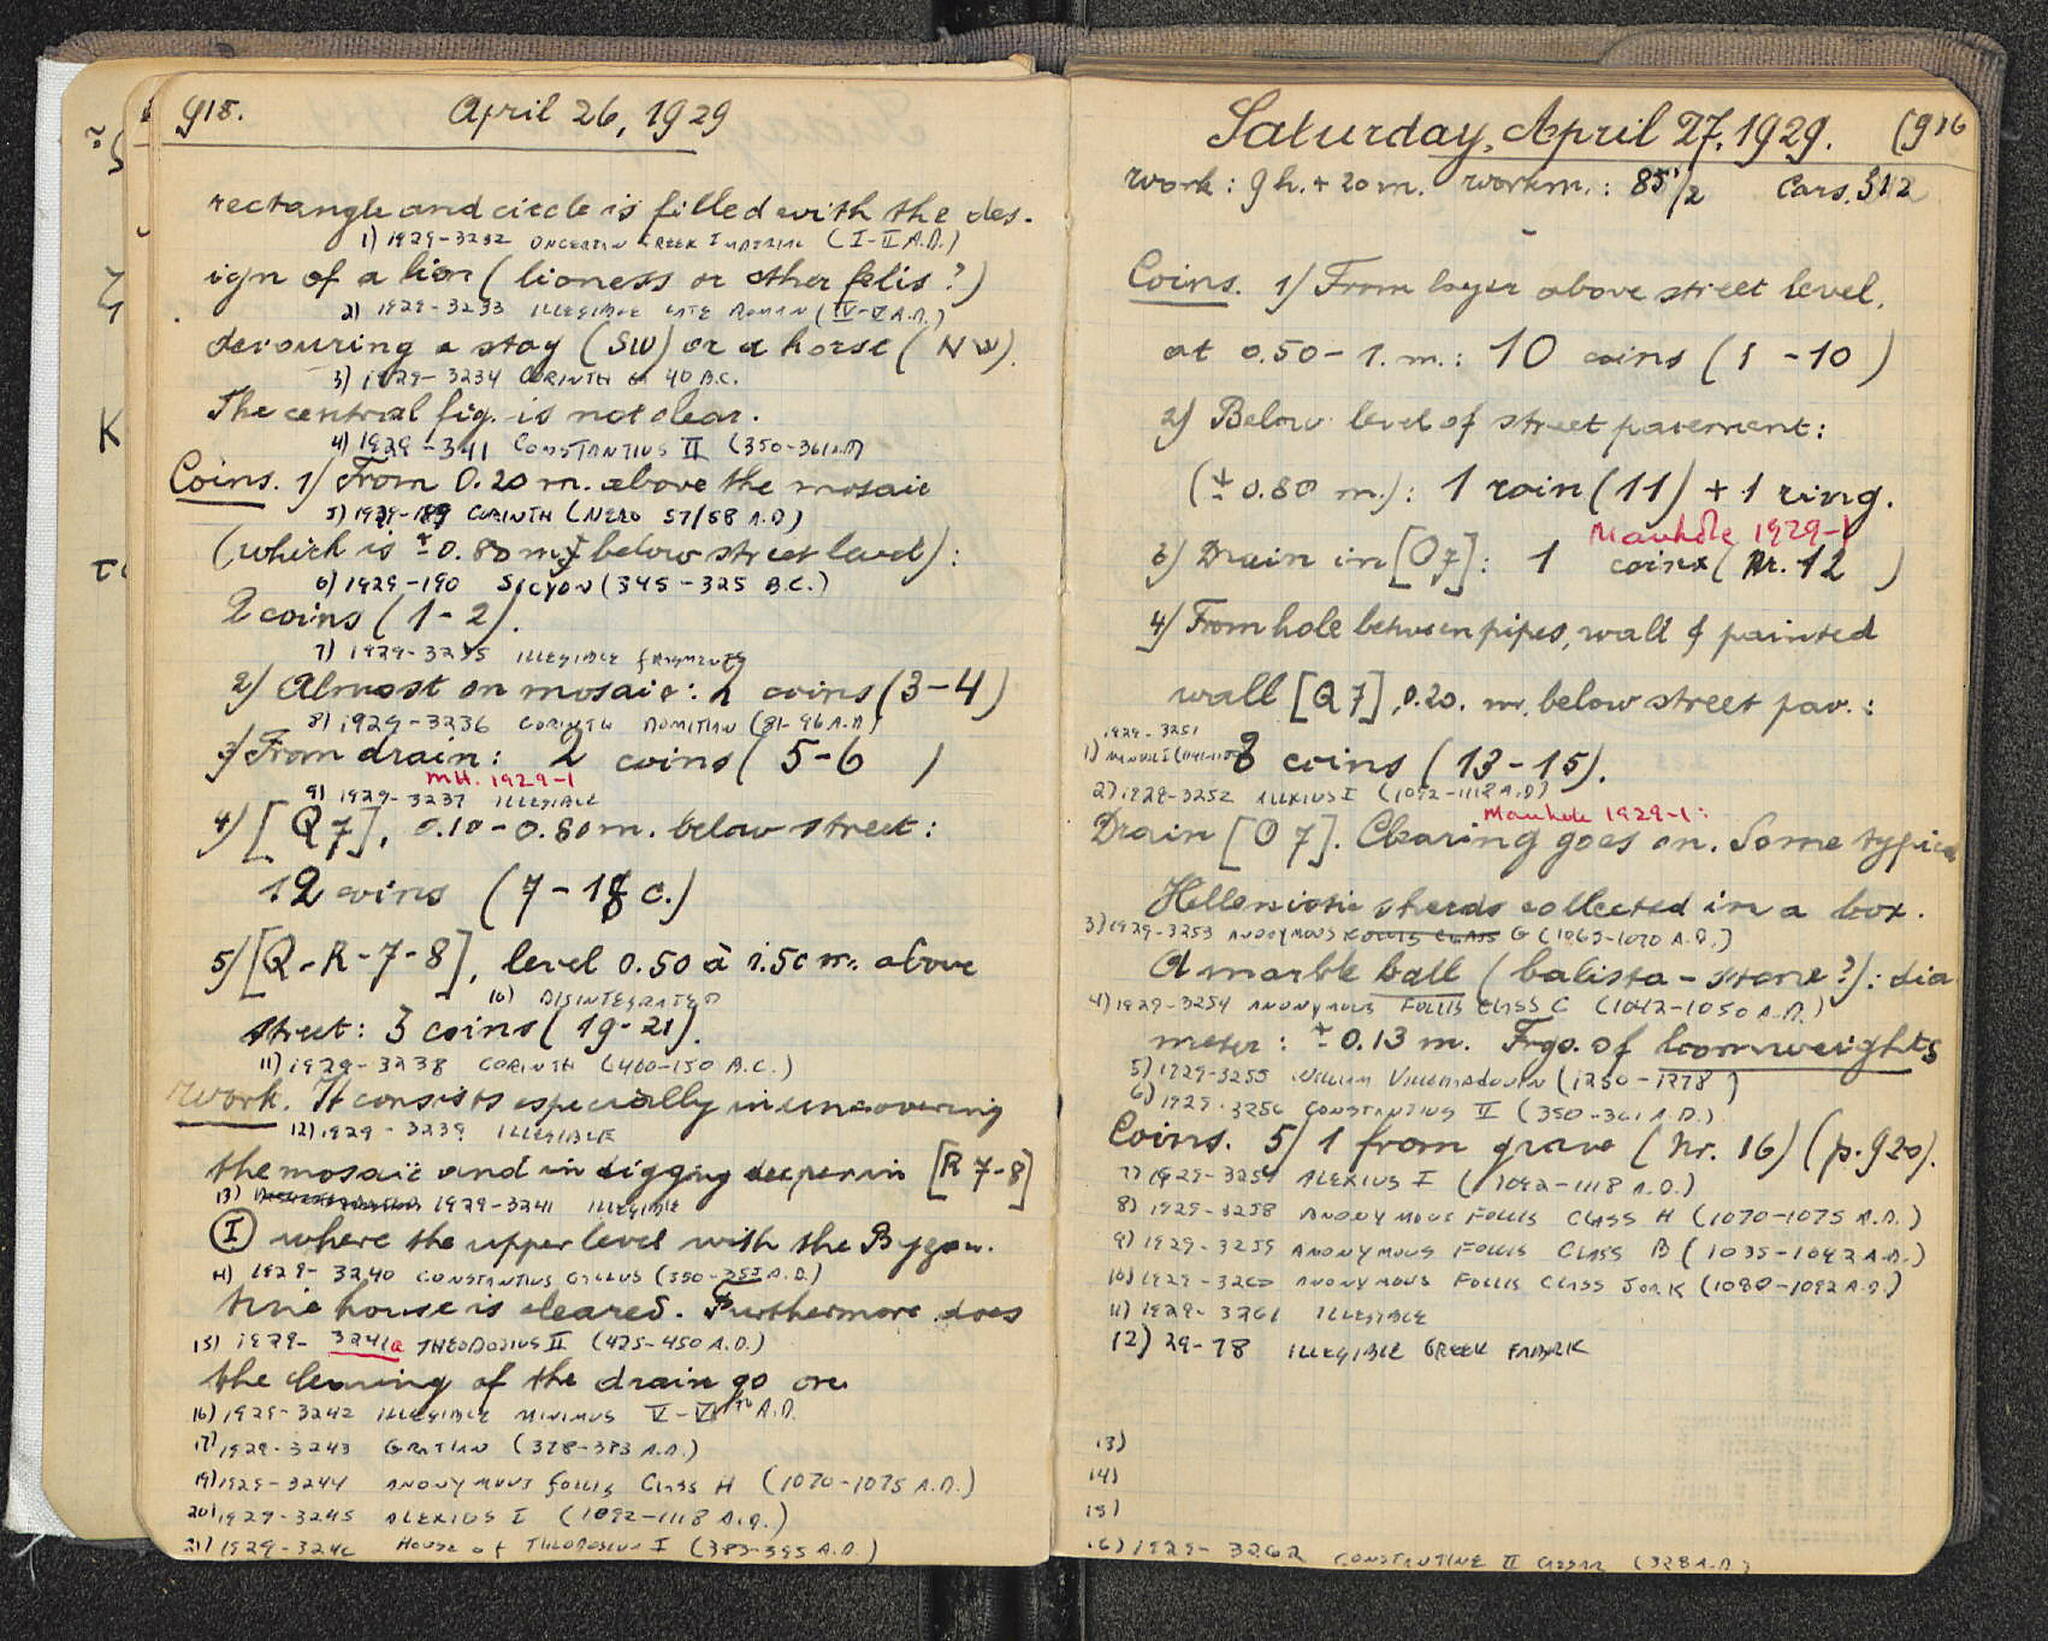 918. April 26, 1929
rectangle and circle is filled with the des-
1) 1929-3232 UNCERTAIN GREEK IMPERIAL (I-II A.D.)
ign of a lion (lioness or other felis?)
2) 1929-3233 ILLEGIBLE LATE ROMAN (IV-V A.D.)
devouring a stag (SW) or a horse (NW).
3) 1929-3234 CORINTH 40 B.C.
The central fig. is not clear.
4) 1929-341 CONSTANTIUS II (350-361 A.D)
Coins. 1) From 0.20 m. above the mosaic
5) 1929-189 CORINTH (NERO 57/58 A.D)
(which is ± 0.80 m. below street level):
6) 1929-190 SICYON (345-325 B.C.)
2 coins (1-2).
7) 1929-3235 ILLEGIBLE FRAGMENTS
2) Almost on mosaic: 2 coins (3-4)
8) 1929-3236 CORINTH DOMITIAN (81-96 A.D)
3) From drain: 2 coins (5-6 )
MH. 1929-1
9) 1929-3237 ILLEGIBLE
4) [Q 7], 0.10-0.80 m. below street:
12 coins (7-18 c.)
5) [Q-R-7-8], level 0.50 à 1.50 m. above
10) DISINTEGRATED
street: 3 coins (19-21).
11) 1929-3238 CORINTH (400-150 B.C.)
Work. It consists especially in uncovering
12) 1929-3239 ILLEGIBLE
the mosaic and in digging deeper in [R 7-8]
13) 1929-3241 ILLEGIBLE
(I) where the upper level with the Byzan-
14) 1929-3240 CONSTANTIUS GALLUS (350-355 A.D.)
tine house is cleared. Furthermore does
15) 1929-3241a THEODOSIUS II (425-450 A.D.)
the cleaning of the drain go on.
16) 1929-3242 ILLEGIBLE MINIMUS V-VI TH A.D.
17) 1929-3243 GRATIAN (378-383 A.D.)
19) 1929-3244 ANONYMOUS FOLLIS CLASS H (1070-1075 A.D.)
20) 1929-3245 ALEXIUS I (1092-1118 A.D.)
21) 1929-3246 HOUSE OF THEODOSIUS I (383-395 A.D.)
Saturday, April 27, 1929. (916
Work: 9 h. + 20 m. workm.: 85 1/2 Cars. 312
Coins. 1) From layer above street level.
at 0.50-1. m.: 10 coins (1-10)
2) Below level of street pavement:
(± 0.80 m.): 1 coin (11) + 1 ring.
Manhole 1929-1
3) Drain in [O 7]: 1 coin (Nr. 12 )
4) From hole between pipes, wall & painted
wall [Q 7], 0.20. m. below street pav.:
1929-3251
1) MANUEL I
3 coins (13-15).
2) 1929-3252 ALEXIUS I (1092-1118 A.D)
Manhole 1929-1:
Drain [O 7]. Clearing goes on. Some typical
Hellenistic sherds collected in a box.
3) 1929-3253 ANONYMOUS FOLLIS CLASS G (1065-1070 A.D.)
A marble ball (balista-stone?): dia
4) 1929-3254 ANONYMOUS FOLLIS CLASS C (1042-1050 A.D.)
meter: ± 0.13 m. Frgs. of loomweights
5) 1929-3255 WILLIAM VILLEHARDOUIN (1250-1278)
6) 1929-3256 CONSTANTIUS II (350-361 A.D.)
Coins. 5) 1 from grave (Nr. 16) (p. 920).
7) 1929-3257 ALEXIUS I (1092-1118 A.D.)
8) 1929-3258 ANONYMOUS FOLLIS CLASS H (1070-1075 A.D.)
9) 1929-3259 ANONYMOUS FOLLIS CLASS B (1035-1042 A.D.)
10) 1929-3260 ANONYMOUS FOLLIS CLASS J OR K (1080-1092 A.D.)
11) 1929-3261 ILLEGIBLE
12) 29-78 ILLEGIBLE GREEK FABRIK
13)
14)
15)
16) 1929-3262 CONSTANTINE II CAESAR (328 A.D.)